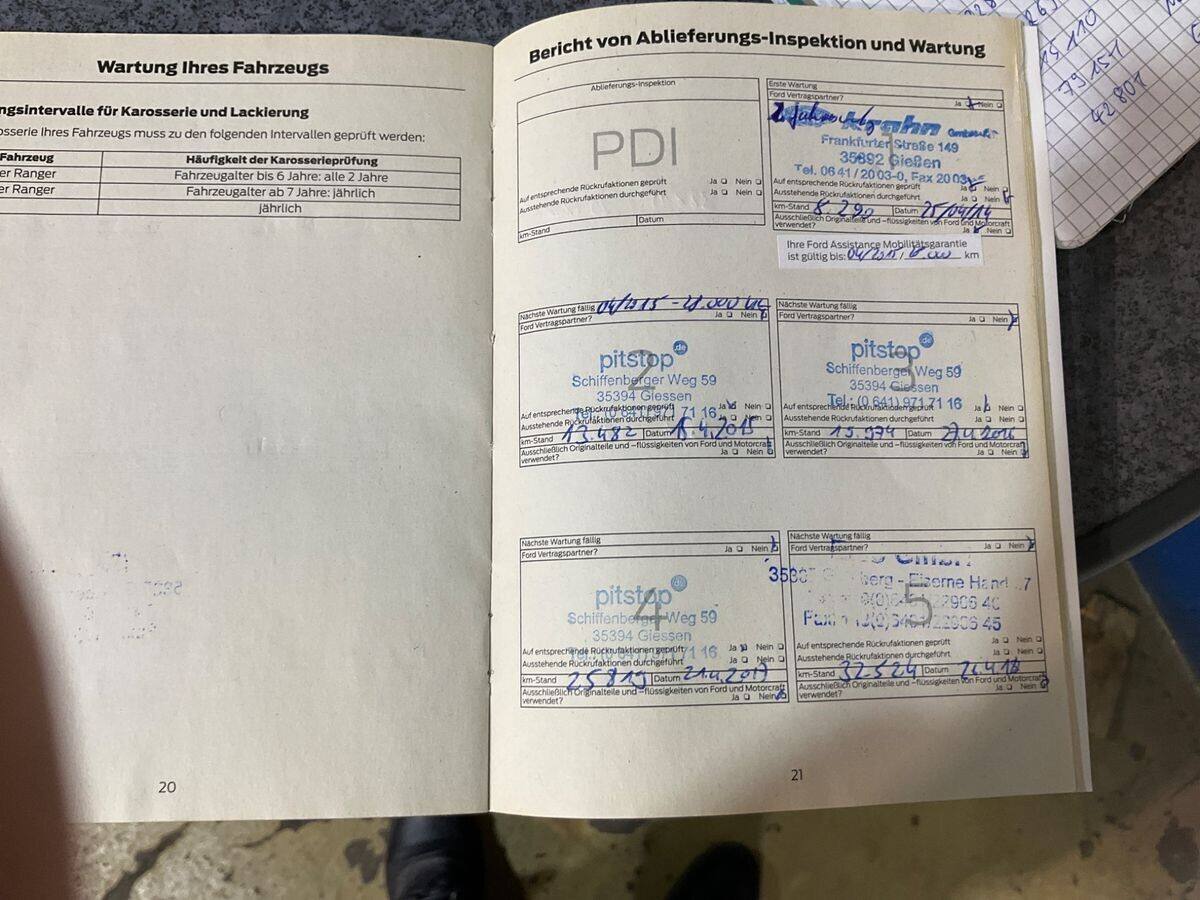 Wartung Ihres Fahrzeugs
ngsintervalle für Karosserie und Lackierung
osserie Ihres Fahrzeugs muss zu den folgenden Intervallen geprüft werden:
Fahrzeug Häufigkeit der Karosserieprüfung
er Ranger Fahrzeugalter bis 6 Jahre: alle 2 Jahre
er Ranger Fahrzeugalter ab 7 Jahre: jährlich
jährlich
20
Bericht von Ablieferungs-Inspektion und Wartung
Ablieferungs-Inspektion
PDI
Auf entsprechende Rückrufaktionen geprüft Ja Nein
Ausstehende Rückrufaktionen durchgeführt Ja Nein
km-Stand Datum
Erste Wartung
Ford Vertragspartner? Ja Nein
1
Krahn
Frankfurter Straße 149
35392 Gießen
Tel. 06 41 / 20 03-0, Fax 20 03
Auf entsprechende Rückrufaktionen geprüft Ja Nein
Ausstehende Rückrufaktionen durchgeführt
km-Stand 8.290 Datum 25/04/14
Ausschließlich Originalteile und -flüssigkeiten von Ford und Motorcraft
verwendet? Ja Nein
Ihre Ford Assistance Mobilitätsgarantie
ist gültig bis: 04/2015 / km
Nächste Wartung fällig 04/2015 -
Ford Vertragspartner? Ja Nein
2
pitstop.de
Schiffenberger Weg 59
35394 Giessen
Tel.: (0 641) 971 71 16
Auf entsprechende Rückrufaktionen geprüft Ja Nein
Ausstehende Rückrufaktionen durchgeführt Ja Nein
km-Stand 13.482 Datum 15.4.2015
Ausschließlich Originalteile und -flüssigkeiten von Ford und Motorcraft
verwendet? Ja Nein
Nächste Wartung fällig
Ford Vertragspartner? Ja Nein
3
pitstop.de
Schiffenberger Weg 59
35394 Giessen
Tel.: (0 641) 971 71 16
Auf entsprechende Rückrufaktionen geprüft Ja Nein
Ausstehende Rückrufaktionen durchgeführt Ja Nein
km-Stand 19.974 Datum
Ausschließlich Originalteile und -flüssigkeiten von Ford und Motorcraft
verwendet? Ja Nein
Nächste Wartung fällig
Ford Vertragspartner? Ja Nein
4
pitstop.de
Schiffenberger Weg 59
35394 Giessen
Tel.: (0 641) 971 71 16
Auf entsprechende Rückrufaktionen geprüft Ja Nein
Ausstehende Rückrufaktionen durchgeführt Ja Nein
km-Stand 25819 Datum 21.4.2017
Ausschließlich Originalteile und -flüssigkeiten von Ford und Motorcraft
verwendet? Ja Nein
Nächste Wartung fällig
Ford Vertragspartner? Ja Nein
5
GmbH
berg - Eiserne Hand 7
22906 40
22906 45
Auf entsprechende Rückrufaktionen geprüft Ja Nein
Ausstehende Rückrufaktionen durchgeführt Ja Nein
km-Stand 32524 Datum 26.4.18
Ausschließlich Originalteile und -flüssigkeiten von Ford und Motorcraft
verwendet? Ja Nein
21
15 110
79 151
42801